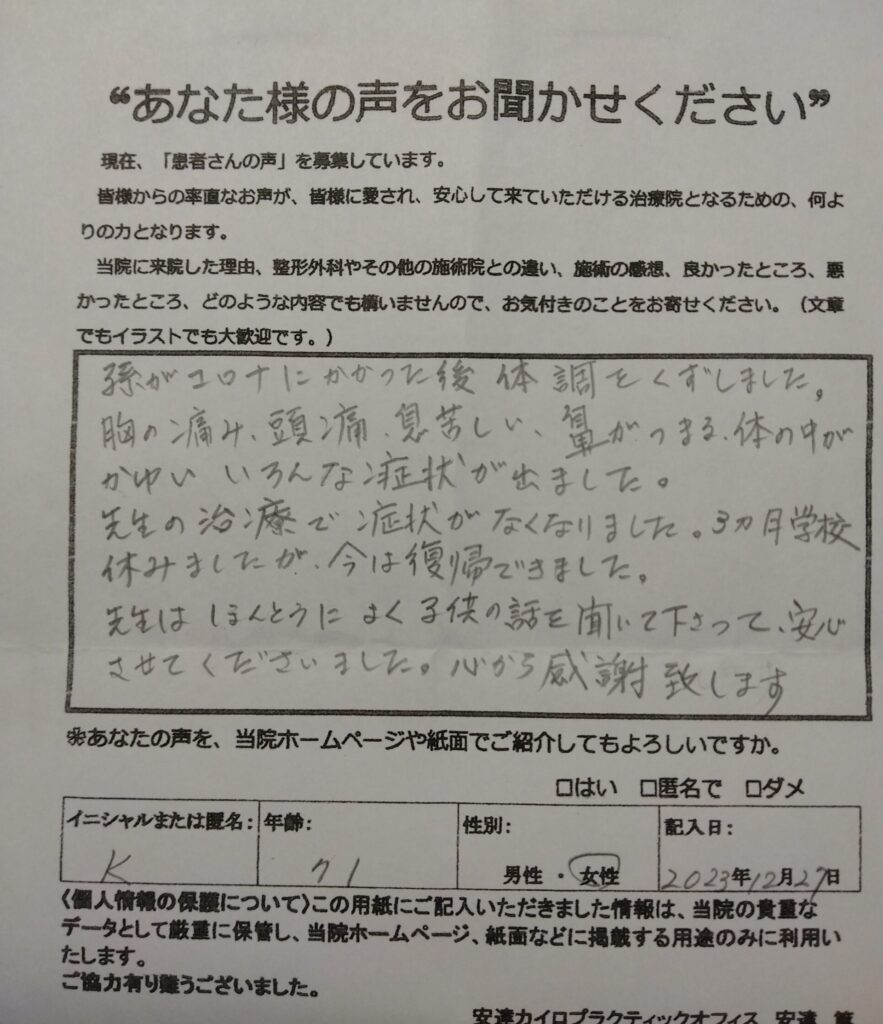 “あなた様の声をお聞かせください”
現在、「患者さんの声」を募集しています。
皆様からの率直なお声が、皆様に愛され、安心して来ていただける治療院となるための、何よ
りの力となります。
当院に来院した理由、整形外科やその他の施術院との違い、施術の感想、良かったところ、悪
かったところ、どのような内容でも構いませんので、お気付きのことをお寄せください。（文章
でもイラストでも大歓迎です。）
孫がコロナにかかった後 体調をくずしました。
胸の痛み、頭痛、息苦しい、鼻がつまる、体の中が
かゆい いろんな症状が出ました。
先生の治療で症状がなくなりました。3カ月学校
休みましたが、今は復帰できました。
先生はほんとうによく子供の話を聞いて下さって、安心
させてくださいました。心から感謝致します
※あなたの声を、当院ホームページや紙面でご紹介してもよろしいですか。
□はい □匿名で □ダメ
イニシャルまたは匿名: 年齢: 性別: 記入日:
K 71 男性 ・ 女性 2023年12月27日
〈個人情報の保護について〉この用紙にご記入いただきました情報は、当院の貴重な
データとして厳重に保管し、当院ホームページ、紙面などに掲載する用途のみに利用い
たします。
ご協力有り難うございました。
安達カイロプラクティックオフィス 安達